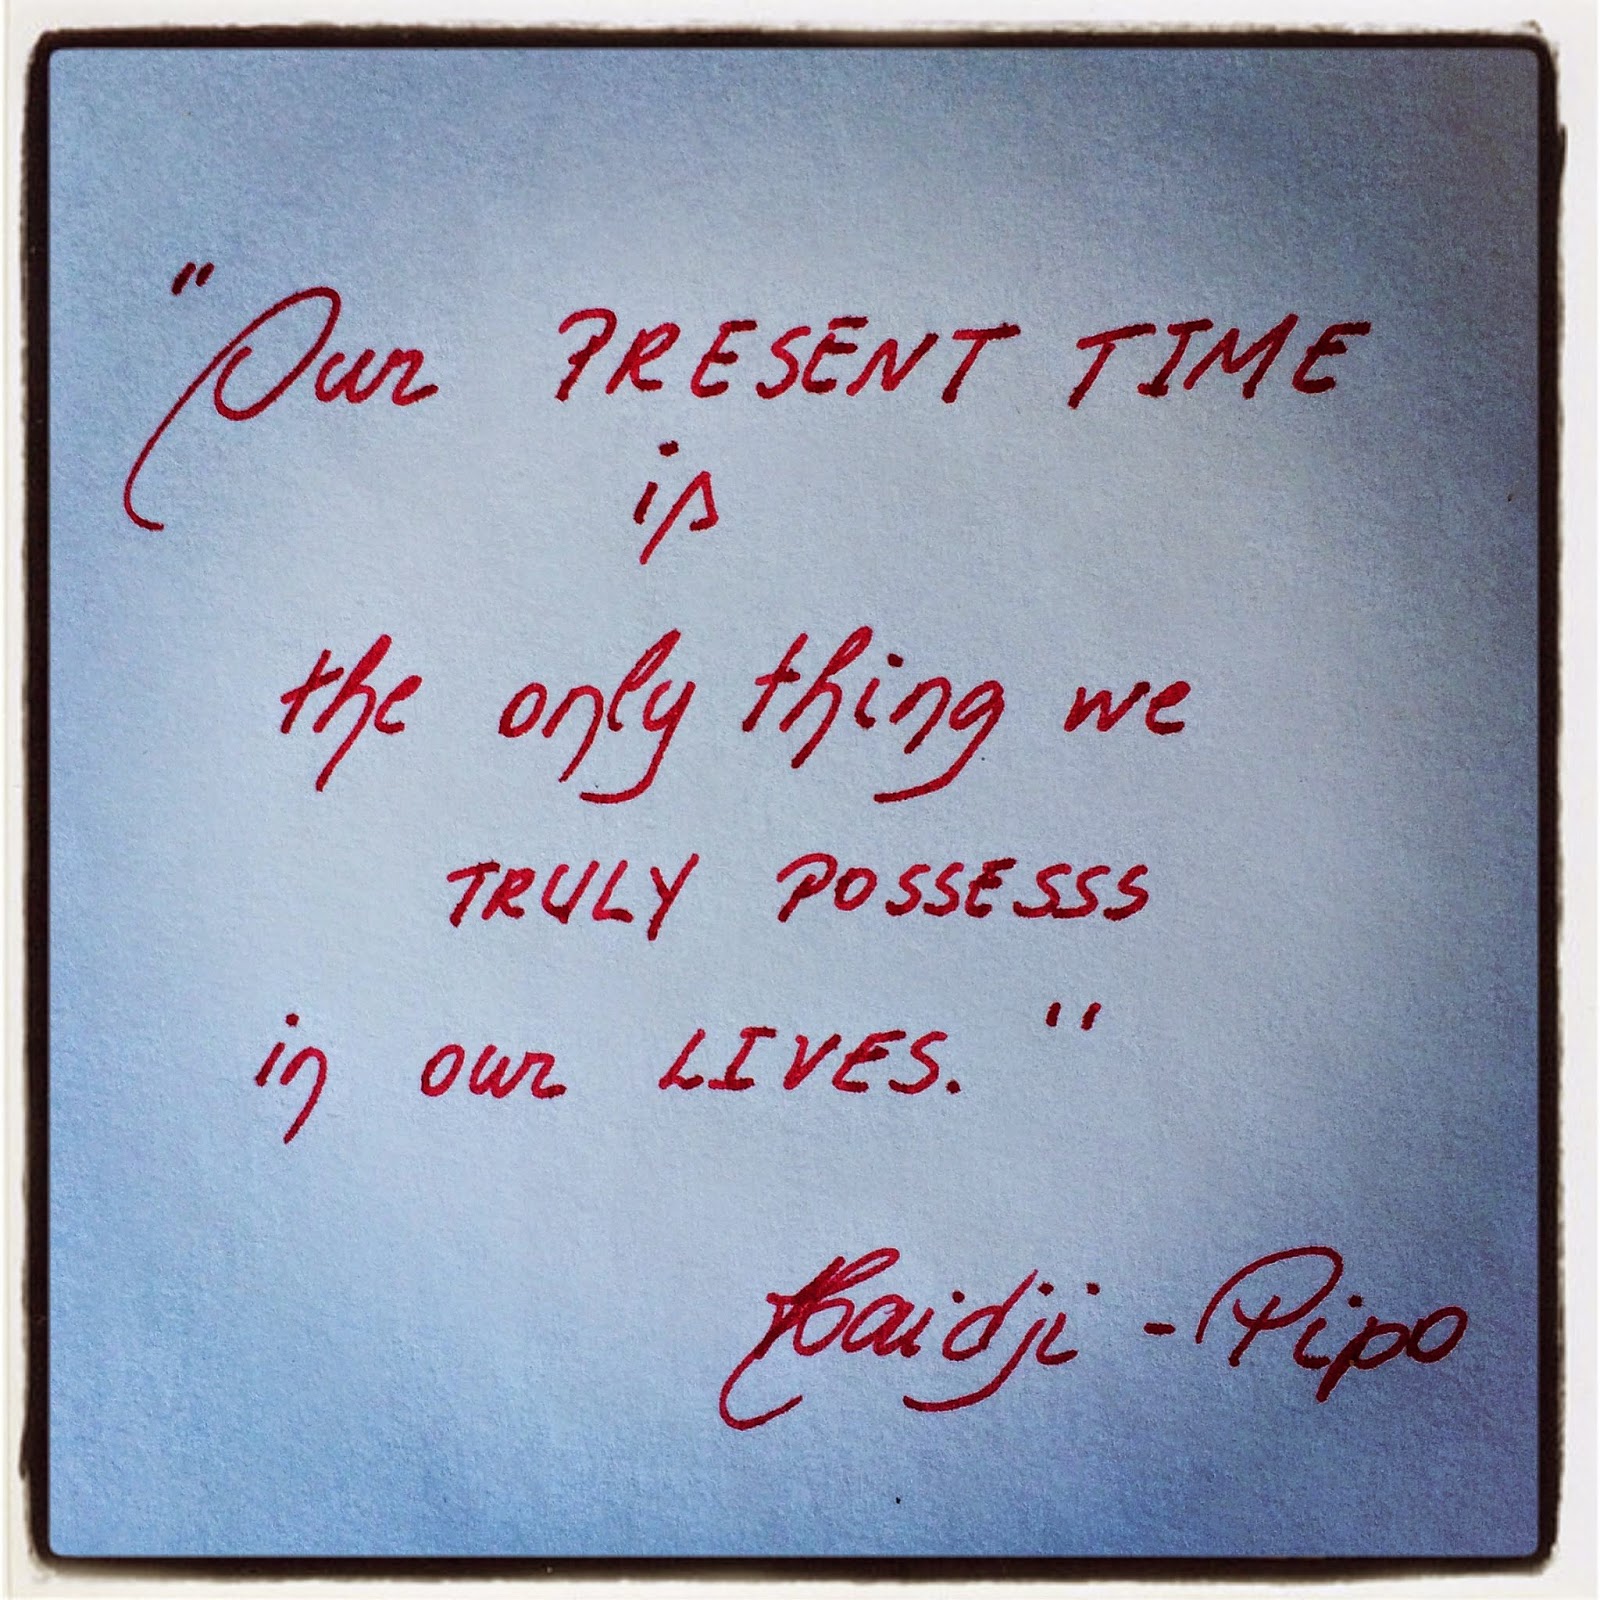 "Our PRESENT TIME
is
the only thing we
TRULY POSSESSS
in our LIVES."
Haidji - Pipo